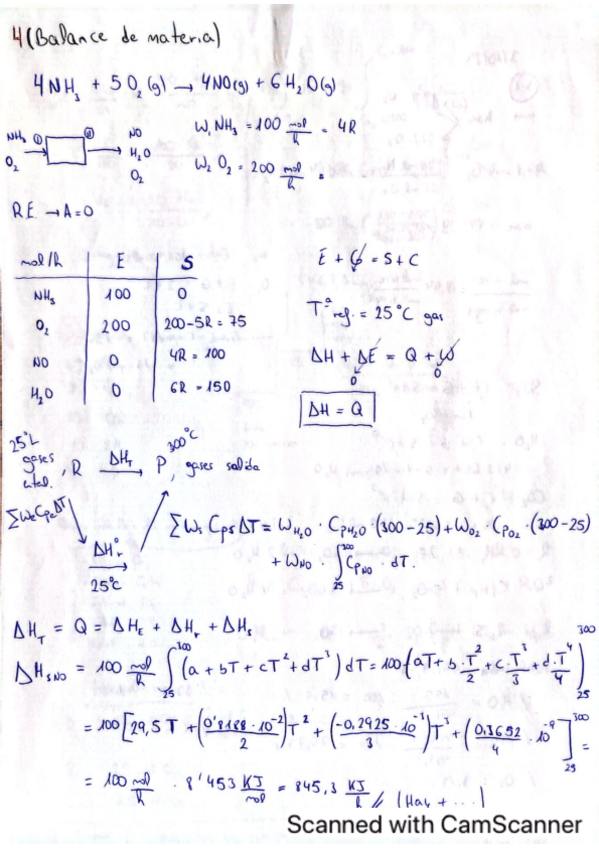 4 (Balance de materia)
4NH₃ + 5O₂(g) → 4NO(g) + 6H₂O(g)
NH₃ ① ② NO
O₂ H₂O
O₂
W₁ NH₃ = 100 mol/h = 4R
W₂ O₂ = 200 mol/h
R.E. → A=0
mol/h E S
NH₃ 100 0
O₂ 200 200-5R = 75
NO 0 4R = 100
H₂O 0 6R = 150
E + G = S + C
0
Tª ref. = 25°C gas
ΔH + ΔE = Q + W
0 0
ΔH = Q
25°C 300°C
gases R ΔH_T P, gases salida
ΣWe Cpe ΔT
ΔH°r
25°C
ΣWs Cps ΔT = W_H₂O · Cp_H₂O (300-25) + W_O₂ · Cp_O₂ · (300-25)
+ W_NO · ∫₂₅³⁰⁰ Cp_NO · dT.
ΔH_T = Q = ΔH_E + ΔH_r + ΔH_S
ΔH_S NO = 100 mol/h ∫₂₅³⁰⁰ (a + bT + cT² + dT³) dT = 100 (aT + b·T²/2 + c·T³/3 + d·T⁴/4)₂₅³⁰⁰
= 100 [29,5 T + (0'8188·10⁻²/2) T² + (-0,2925·10⁻⁵/3) T³ + (0,3652/4 ·10⁻⁹ ]₂₅³⁰⁰ =
= 100 mol/h · 8'453 KJ/mol = 845,3 KJ/h // (Hay + ...)
Scanned with CamScanner